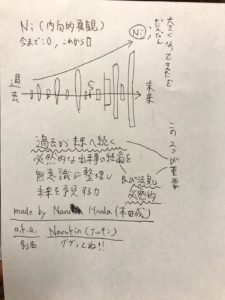 Ni (内向的直観)
今まで:0, これから□
Ni
大きくなってきたぞ
だんだん
過去
未来
過去から未来へ続く
必然的な出来事の経過を
無意識に整理し
未来を予見する力
この2つが重要
必然的
made by Narukin Honda (本田成)
a.k.a. Narukin (ナーキン)
別名 ググってね!!